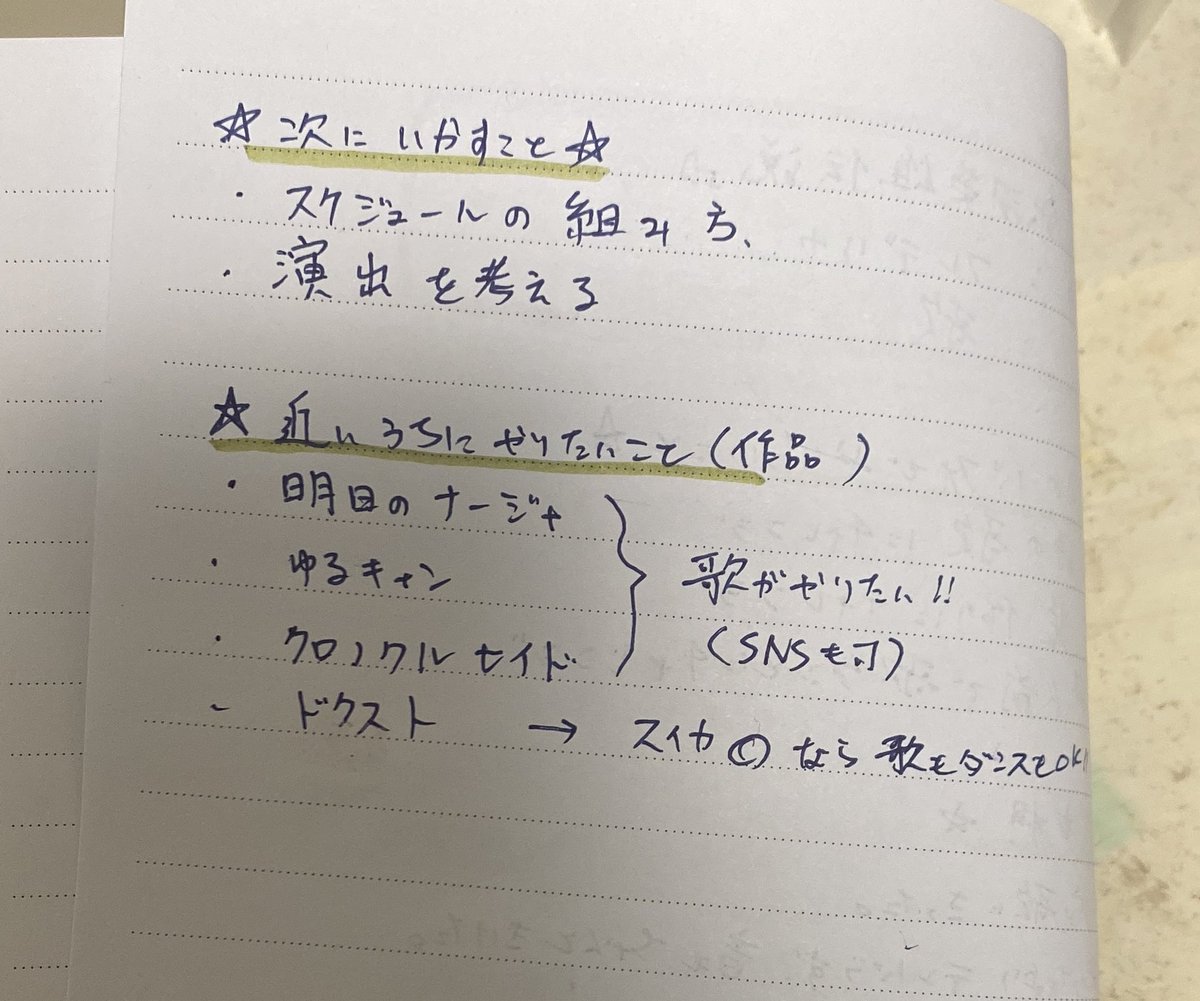 ☆次にいかすこと☆
・スケジュールの組み方、
・演出を考える
☆近いうちにやりたいこと(作品)
・明日のナージャ
・ゆるキャン
・クロノクルセイド
歌がやりたい!!
(SNSも可)
・ドクスト → スイカ©なら歌もダンスもOK!!